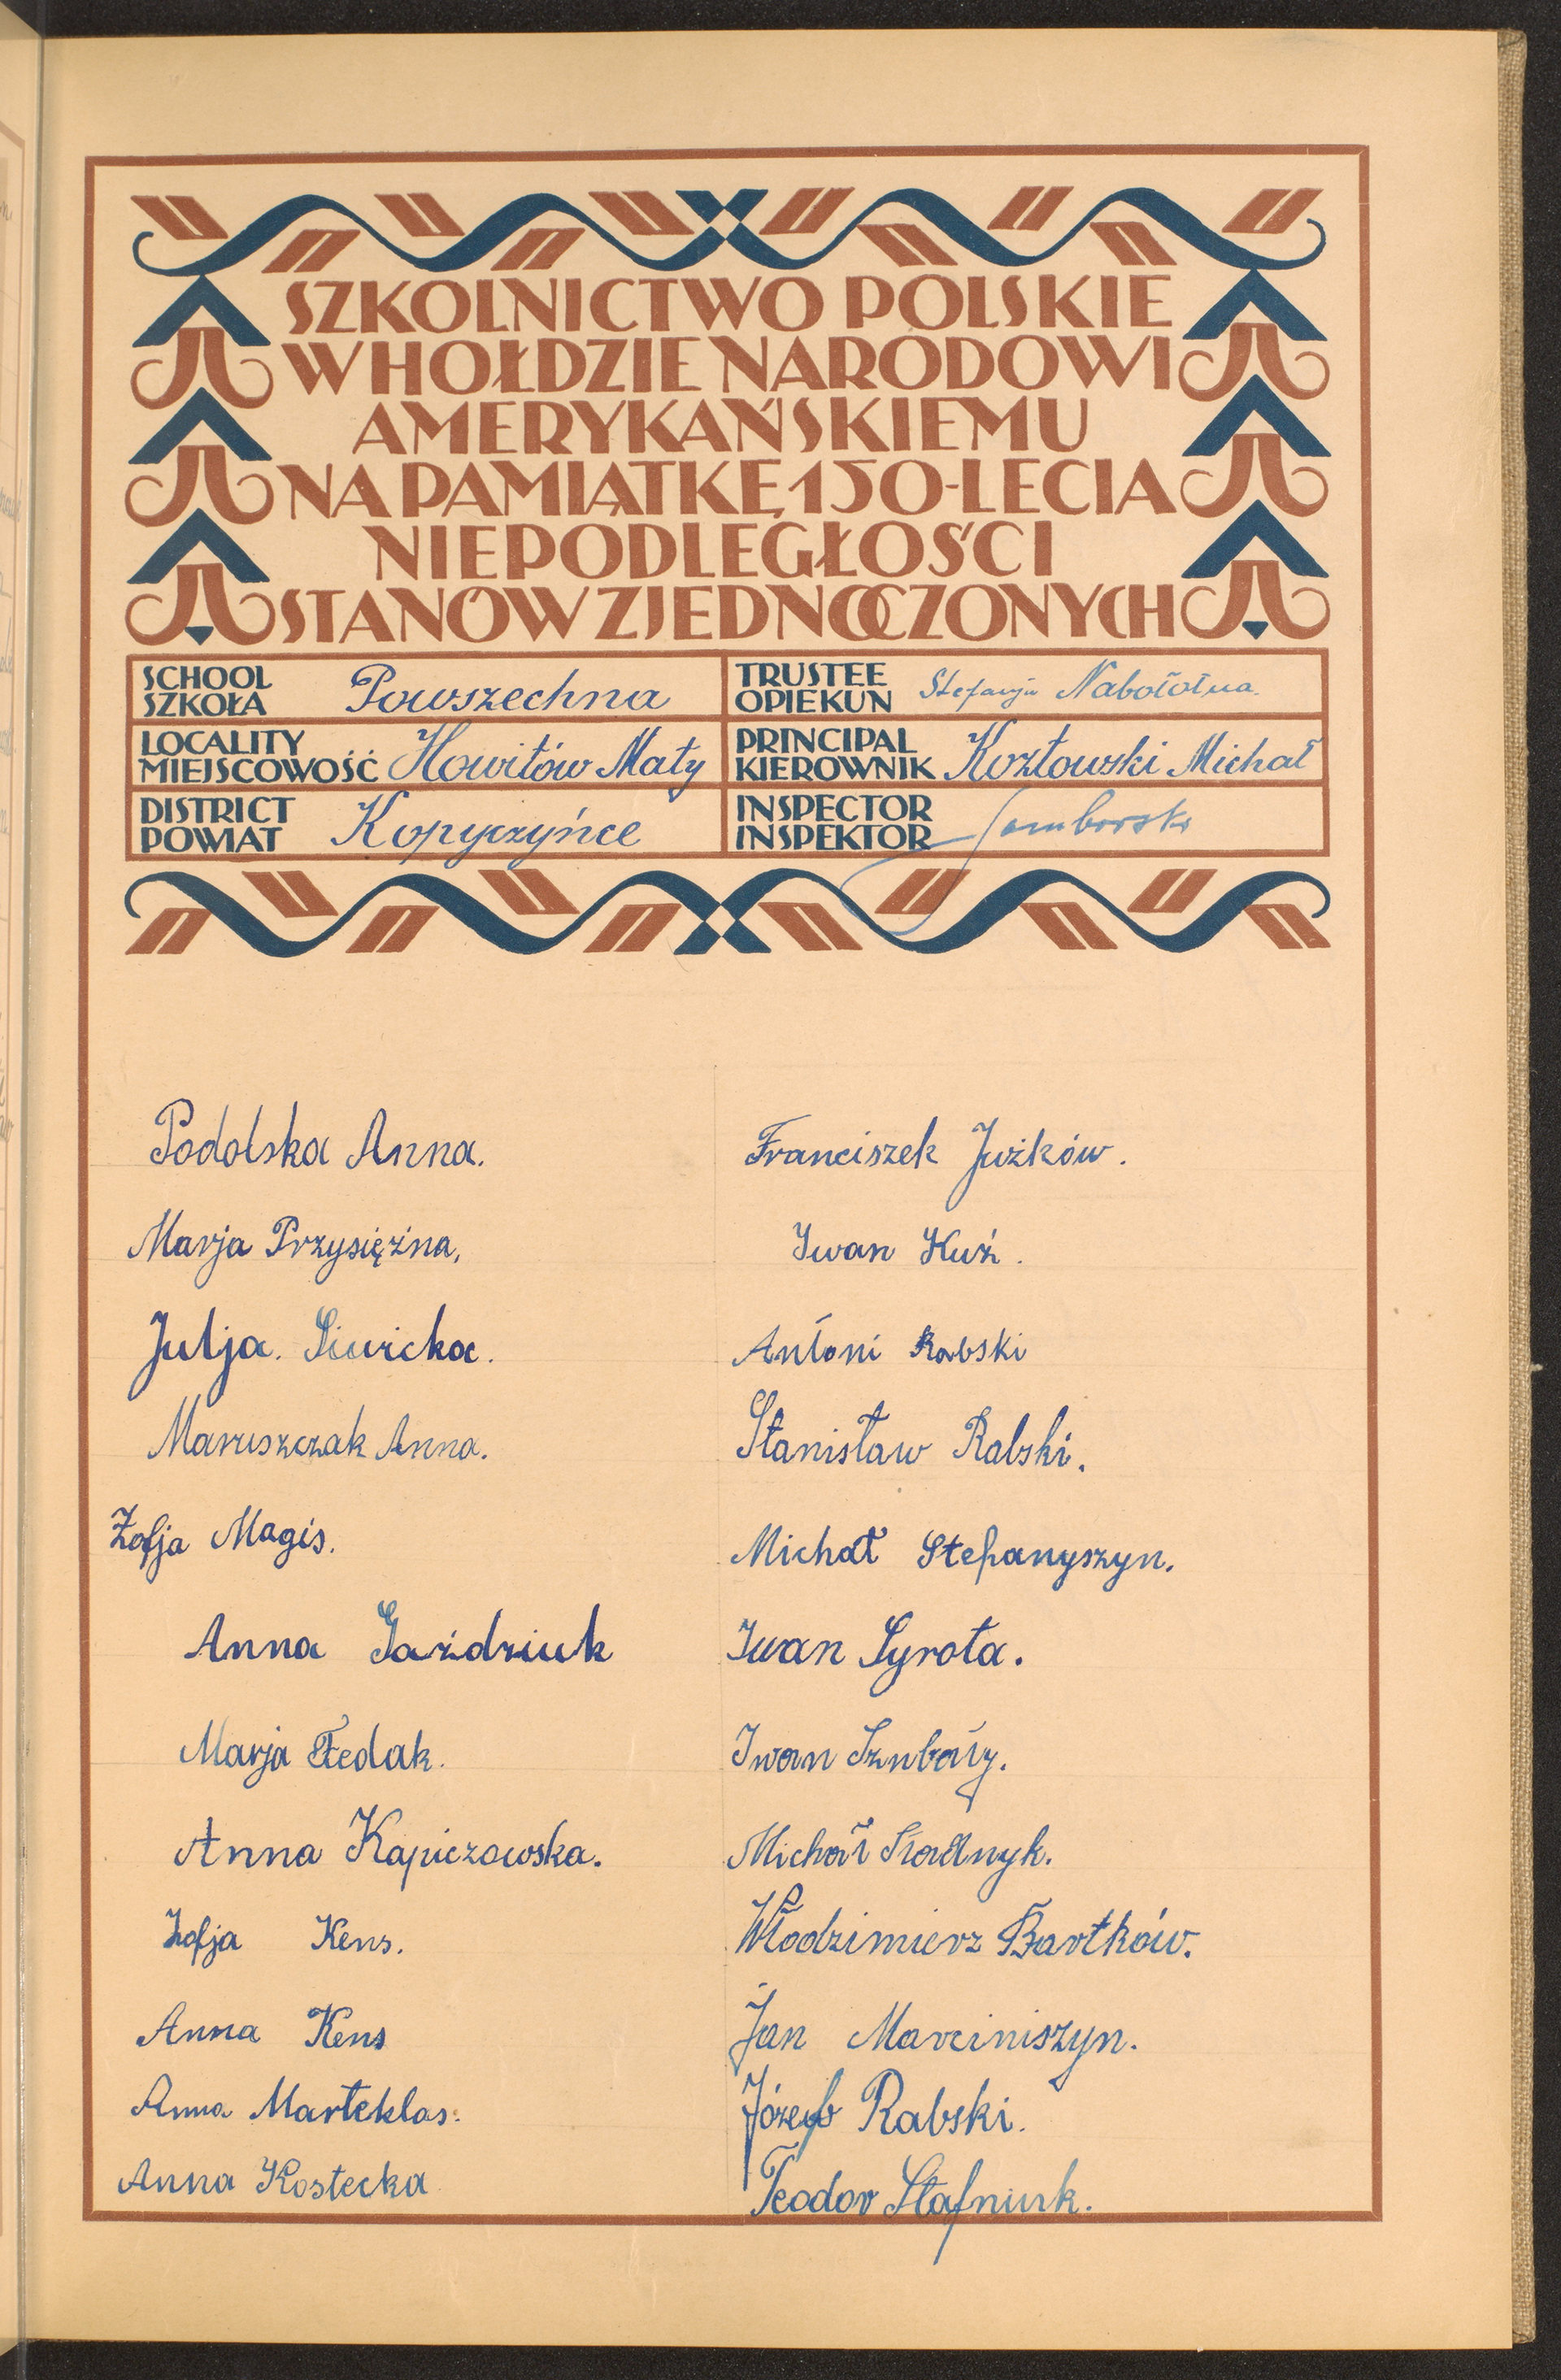 SZKOLNICTWO POLSKIE
W HOŁDZIE NARODOWI
AMERYKAŃSKIEMU
NA PAMIĄTKĘ 150-LECIA
NIEPODLEGŁOŚCI
STANÓW ZJEDNOCZONYCH
SCHOOL
SZKOŁA Powszechna
TRUSTEE
OPIEKUN Stefanja Nabołotna.
LOCALITY
MIEJSCOWOŚĆ Howiłów Mały
PRINCIPAL
KIEROWNIK Kozłowski Michał
DISTRICT
POWIAT Kopyczyńce
INSPECTOR
INSPEKTOR
Podolska Anna.
Marja Przysiężna,
Julja. Siwicka.
Maruszczak Anna.
Zofja Magis.
Anna Gaździuk
Marja Fedak.
Anna Kapiczowska.
Zofja Kens.
Anna Kens
Anna Marteklas.
Anna Kostecka
Franciszek Jużków.
Iwan Kuź.
Antoni Rabski
Stanisław Rabski.
Michał Stefanyszyn.
Iwan Syrota.
Iwan
Michał
Włodzimierz Bartków.
Jan Marciniszyn.
Józef Rabski.
Teodor Stafniuk.